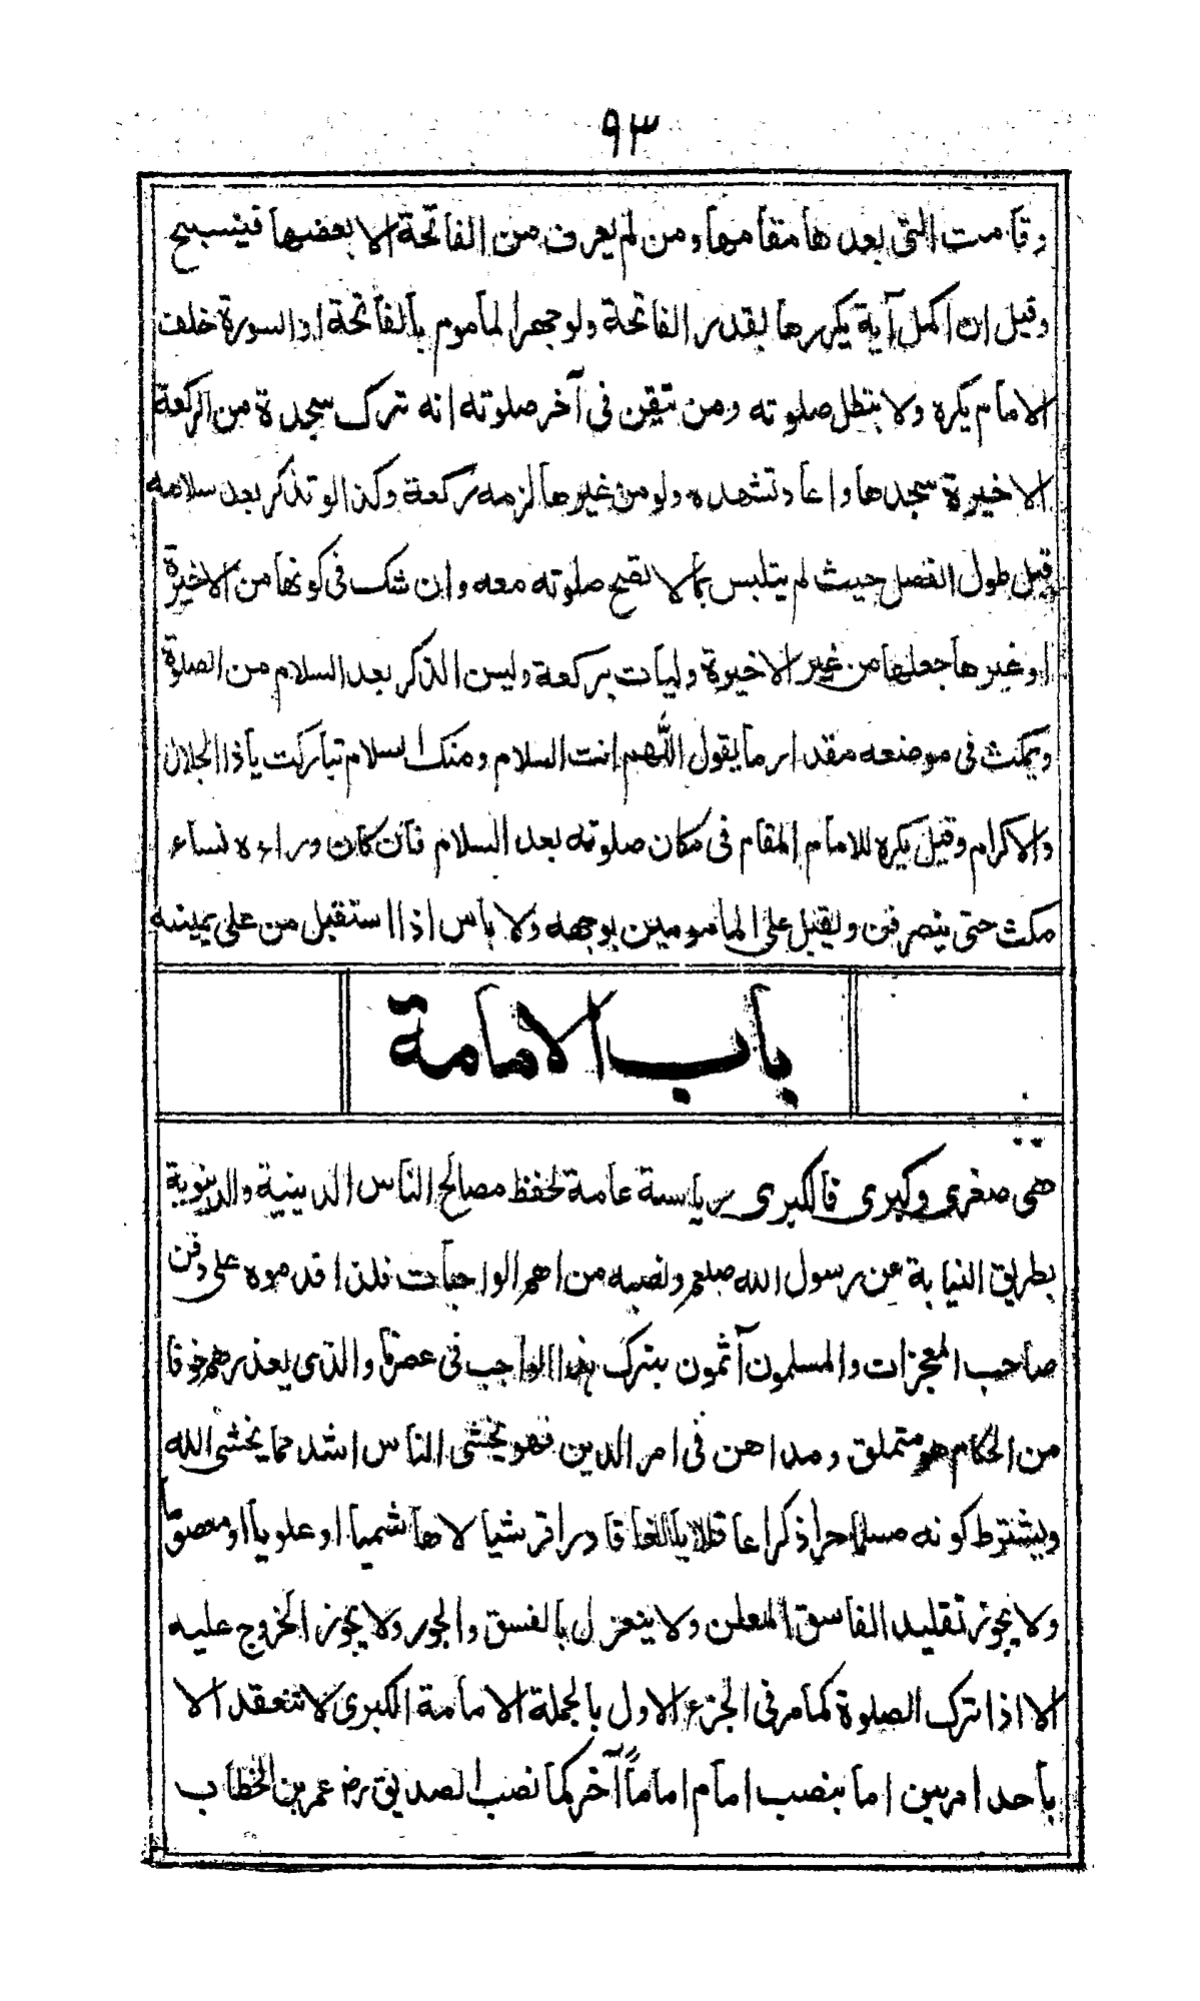 ٩٣
وقامت التى بعدها مقامها ومن لم يعرف من الفاتحة الا بعضها فيسبح
وقيل ان اكمل آية يكررها بقدر الفاتحة ولو جهر المأموم بالفاتحة او السورة خلف
الامام يكره ولا يبطل صلوته ومن تيقن فى آخر صلوته انه ترك سجدة من الركعة
الاخيرة سجدها واعاد تشهده ولو من غيرها لزمه ركعة وكذا لو تذكر بعد سلامه
قبل طول الفصل حيث لم يتلبس بما لا تصح صلوته معه وان شك فى كونها من الاخيرة
او غيرها جعلها من غير الاخيرة وليأت بركعة وليس الذكر بعد السلام من الصلوة
ويمكث فى موضعه مقدار ما يقول اللهم انت السلام ومنك السلام تباركت يا ذا الجلال
والاكرام وقيل يكره للامام المقام فى مكان صلوته بعد السلام فان كان وراءه نساء
مكث حتى ينصرفن ويقبل على المأمومين بوجهه ولا بأس اذا استقبل من على يمينه
باب الامامة
هى صغرى وكبرى فالكبرى رياسة عامة لحفظ مصالح الناس الدينية والدنيوية
بطريق النيابة عن رسول الله صلعم ونصبه من اهم الواجبات فلذا قدموه على دفن
صاحب المعجزات والمسلمون آثمون بترك هذا الواجب فى عصرنا والذى يعذرهم خوفا
من الحكام هو متملق ومداهن فى امر الدين فهو يخشى الناس اشد مما يخشى الله
ويشترط كونه مسلما حرا ذكرا عاقلا بالغا قادرا قرشيا لا هاشميا او علويا او معصوما
ولا يجوز تقليد الفاسق المعلن ولا ينعزل بالفسق والجور ولا يجوز الخروج عليه
الا اذا ترك الصلوة كما مر فى الجزء الاول بالجملة الامامة الكبرى لا تنعقد الا
بأحد امرين اما بنصب امام اماماً آخر كما نصب الصديق رض عمر بن الخطاب